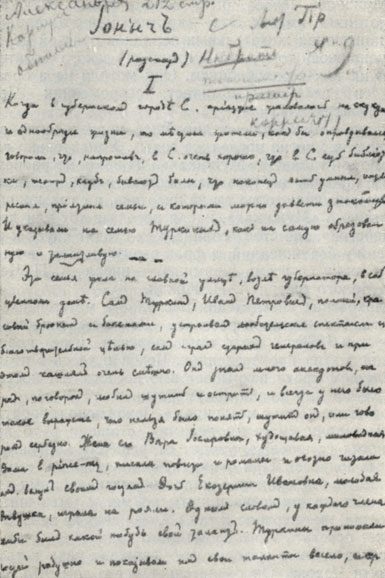 Александровъ 212 стр.
Іонычъ
(разсказъ) Набрать
I
корректу
Когда въ губернскомъ городѣ С. пріѣзжіе жаловались на скуку
и однообразіе жизни, то мѣстные жители, какъ бы оправдываясь
говорили, что, напротивъ, въ С. очень хорошо, что въ С. есть библіоте-
ка, театръ, клубъ, бываютъ балы, что наконецъ есть умныя, инте-
ресныя, пріятныя семьи, съ которыми можно завести знакомства.
И указывали на семью Туркиныхъ, какъ на самую образован-
ную и талантливую.
Эта семья жила на главной улицѣ, возлѣ губернатора, въ соб-
ственномъ домѣ. Самъ Туркинъ, Иванъ Петровичъ, полный, кра-
сивый брюнетъ съ бакенами, устраивалъ любительскіе спектакли съ
благотворительной цѣлью, самъ игралъ старыхъ генераловъ и при
этомъ кашлялъ очень смѣшно. Онъ зналъ много анекдотовъ, ша-
радъ, поговорокъ, любилъ шутить и острить, и всегда у него было
такое выраженіе, что нельзя было понять, шутитъ онъ, или гово-
ритъ серьезно. Жена его Вѣра Іосифовна, худощавая, миловидная
дама въ pince-nez, писала повѣсти и романы и охотно читала
ихъ вслухъ своимъ гостямъ. Дочь Екатерина Ивановна, молодая
дѣвушка, играла на рояли. Однимъ словомъ, у каждаго члена
семьи былъ какой нибудь свой талантъ. Туркины принимали
гостей радушно и показывали имъ свои таланты весело, съ сер-